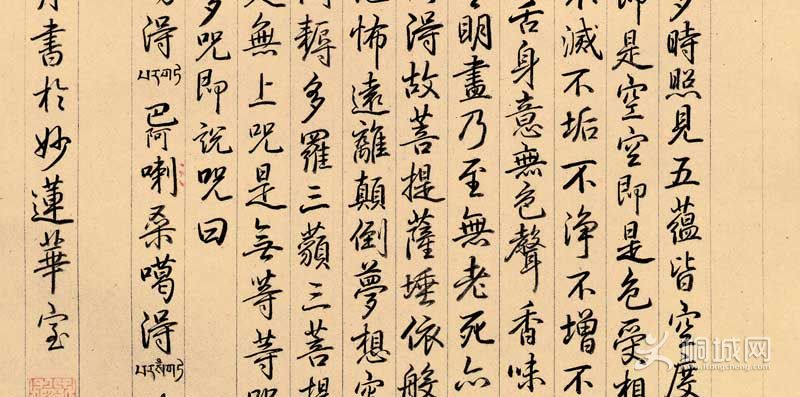 多時照見五蘊皆空度
即是空空即是色受想
不滅不垢不淨不增不
舌身意無色聲香味
明盡乃至無老死亦
得故菩提薩埵依般
怖遠離顛倒夢想究
耨多羅三藐三菩提
是無上咒是無等等咒
多咒即說咒曰
得巴阿喇桑噶得
書於妙蓮華室
桐城网
www.itongcheng.com